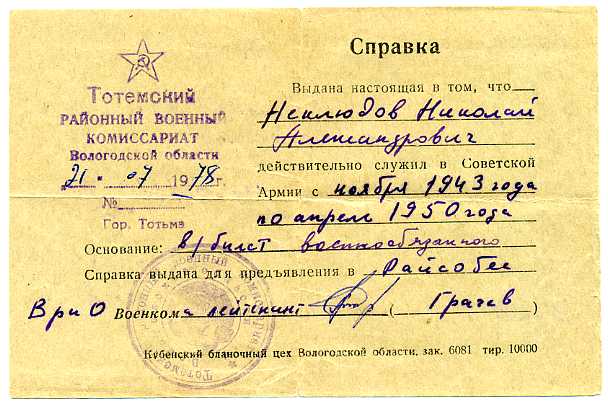 Справка
Тотемский
РАЙОННЫЙ ВОЕННЫЙ
КОМИССАРИАТ
Вологодской области
21 . 07 1978г.
№
Гор. Тотьма
Выдана настоящая в том, что
Неклюдов Николай
Александрович
действительно служил в Советской
Армии с ноября 1943 года
по апрель 1950 года
Основание: в/билет военнообязанного
Справка выдана для предъявления в Райсобес
ВриО Военкома лейтенант (Грачев)
Кубенский бланочный цех Вологодской области, зак. 6081 тир. 10000